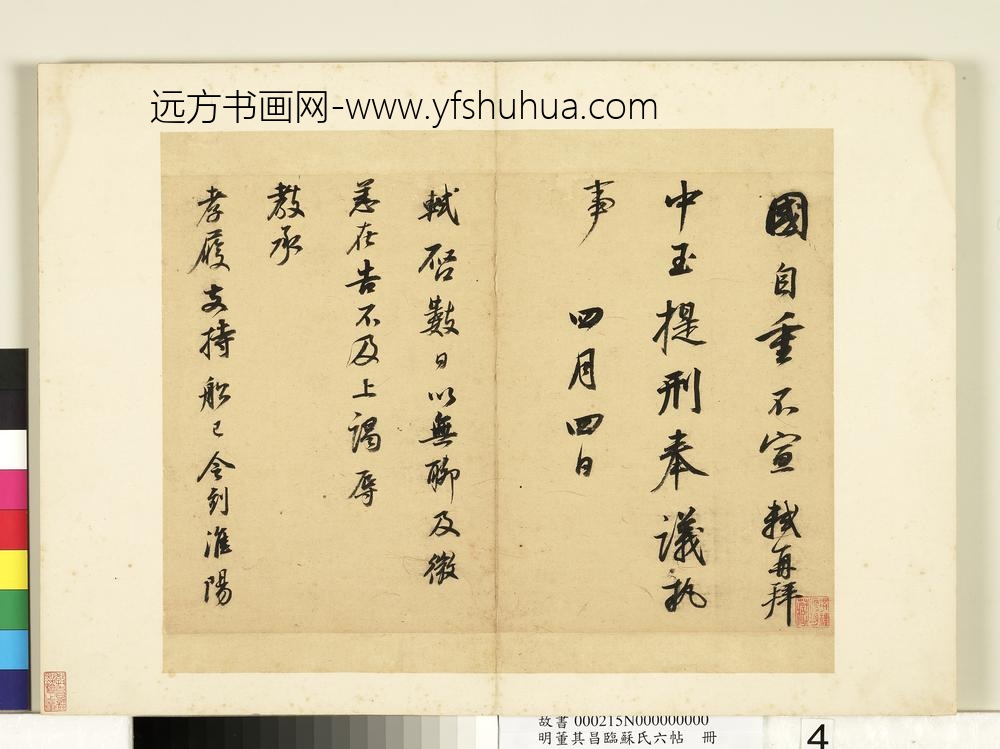 远方书画网-www.yfshuhua.com
國自重不宣軾再拜
中玉提刑奉議執
事 四月四日
軾啓數日以無聊及微
恙在告不及上謁辱
教承
孝履支持船已令到淮陽
故書 000215N000000000
明董其昌臨蘇氏六帖 冊
4